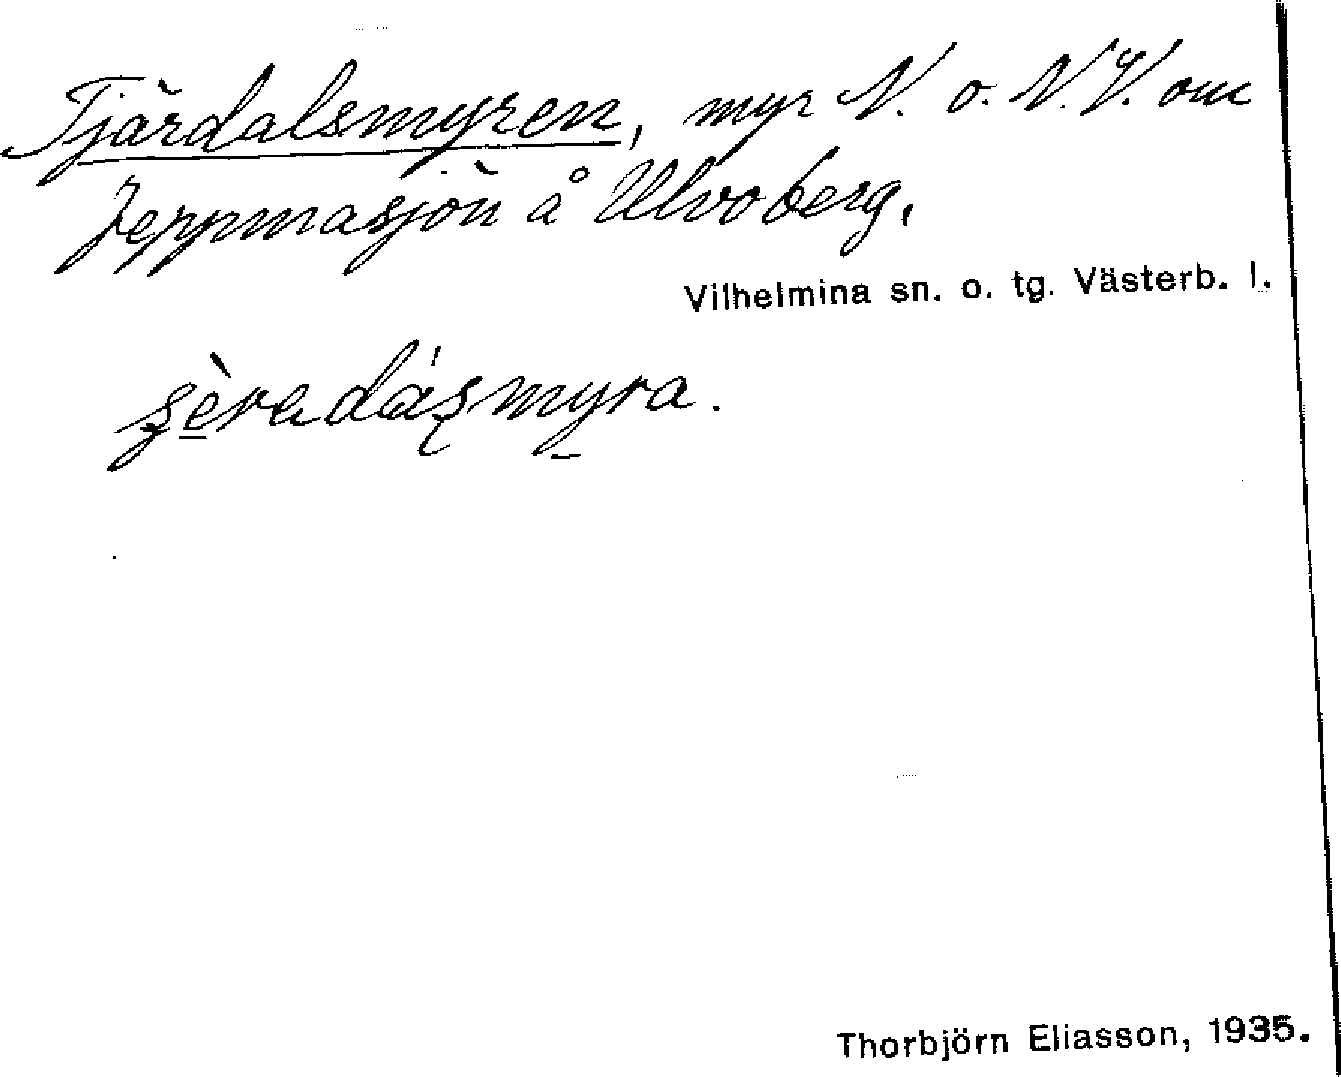 Tjärdalsmyren, myr N. o. N.V. om
Jeppmasjön å Ulvoberg.
Vilhelmina sn. o. tg. Västerb. l.
Thorbjörn Eliasson, 1935.